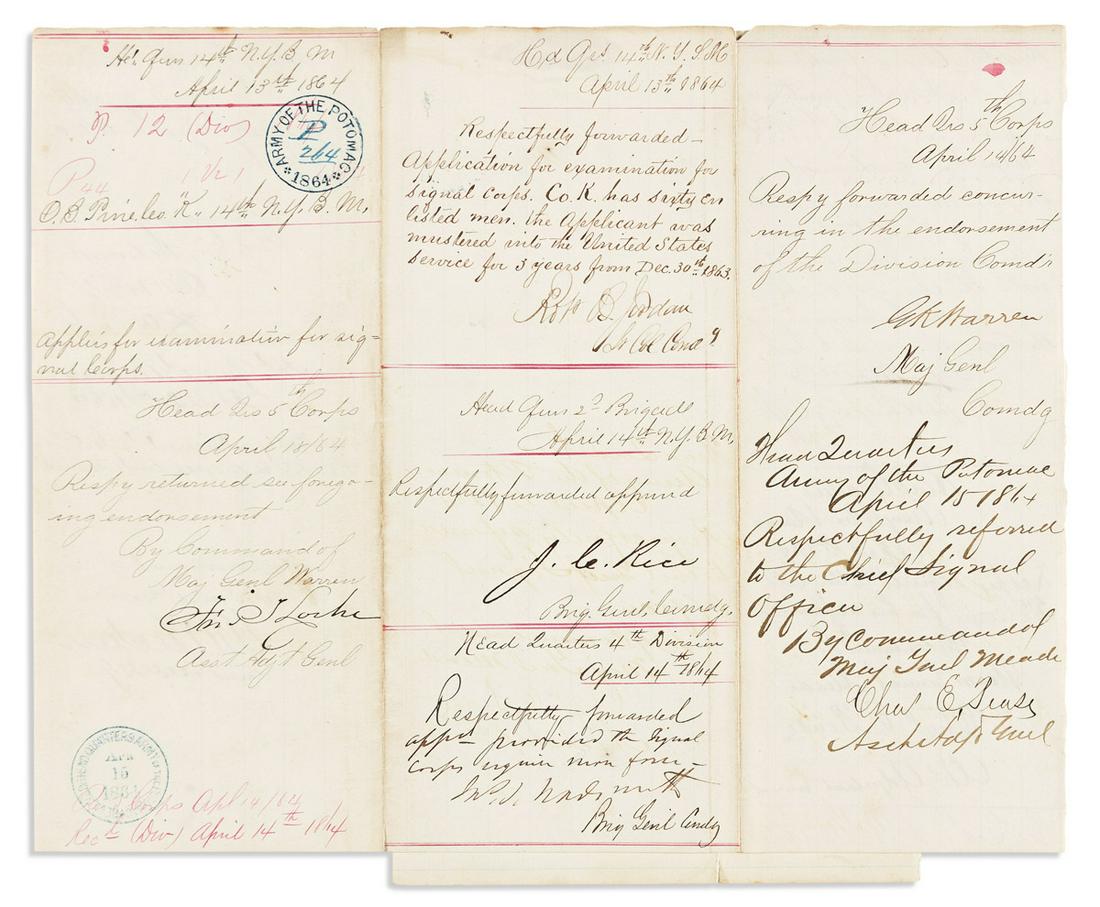 Hd. Qurs 14th N.Y.S.M
April 13th 1864
P. 12 (Div)
ARMY OF THE POTOMAC
P
264
1864
P 44
"K" 14th N.Y.S.M.
applies for examination for sig=
nal Corps.
Head Qrs 5th Corps
April 18/64
Respy returned see forego-
ing endorsement
By Command of
Maj Genl Warren
Fred T Locke
Asst Adjt Genl
HEADQUARTERS ARMY OF THE
APR
15
1864
Corps Apl 14/64
Recd (Div) April 14th 1864
Hd Qrs 14th N.Y.S.M
April 13th 1864
Respectfully forwarded—
Application for examination for
signal corps. Co. K. has sixty en
listed men. the Applicant was
mustered into the United States
service for 3 years from Dec. 30th 1863.
Robt B. Jordan
Lt Col Comdg
Head Qurs 2d Brigade
April 14th N.Y.S.M.
Respectfully forwarded approved
J. C. Rice
Brig. Genl. Comdg.
Head Quarters 4th Division
April 14th 1864
Respectfully forwarded
appd provided the Signal
Corps require more force—
Jas. S. Wadsworth
Brig Genl Comdg
Head Qrs 5th Corps
April 14/64
Respy forwarded concur-
ring in the endorsement
of the Division Comd'r
GK Warren
Maj Genl
Comdg
Head Quarters
Army of the Potomac
April 15 1864
Respectfully referred
to the Chief Signal
Officer
By command of
Maj Genl Meade
Chas E. Pease
Asst Adjt Genl